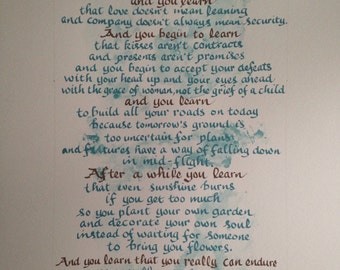 and you learn
that love doesn't mean leaning
and company doesn't always mean security.
And you begin to learn
that kisses aren't contracts
and presents aren't promises
and you begin to accept your defeats
with your head up and your eyes ahead
with the grace of woman, not the grief of a child
and you learn
to build all your roads on today
because tomorrow's ground is
too uncertain for plans
and futures have a way of falling down
in mid-flight.
After a while you learn
that even sunshine burns
if you get too much
so you plant your own garden
and decorate your own soul
instead of waiting for someone
to bring you flowers.
And you learn that you really can endure